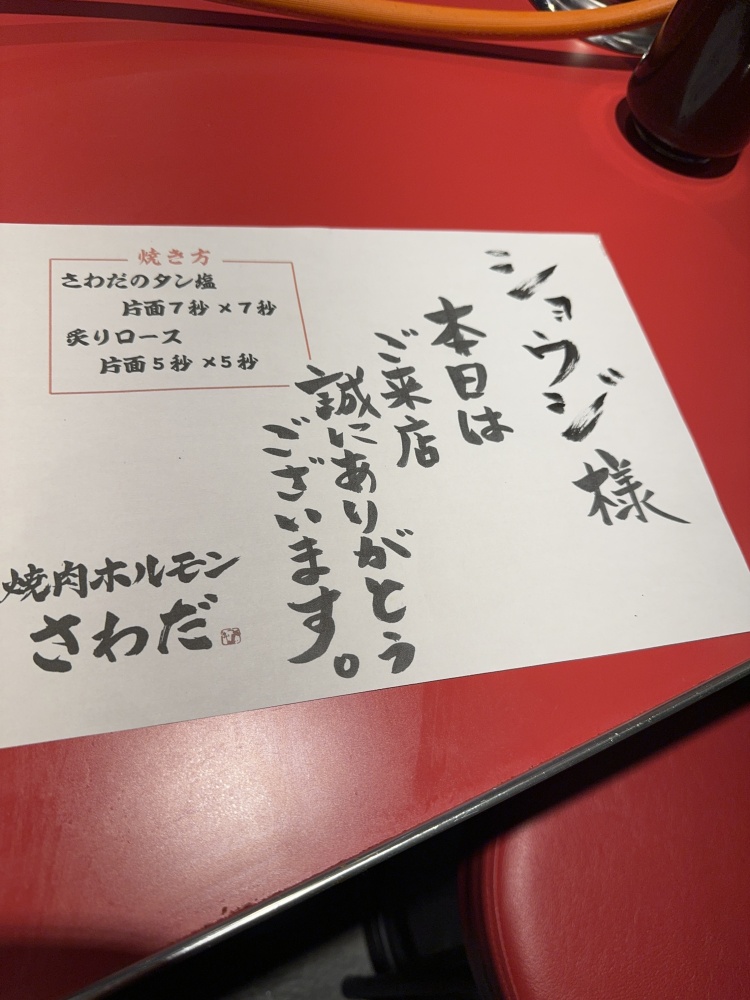 ショウジ様
本日は
ご来店
誠にありがとう
ございます。
焼き方
さわだのタン塩
片面7秒×7秒
炙りロース
片面5秒×5秒
焼肉ホルモン
さわだ